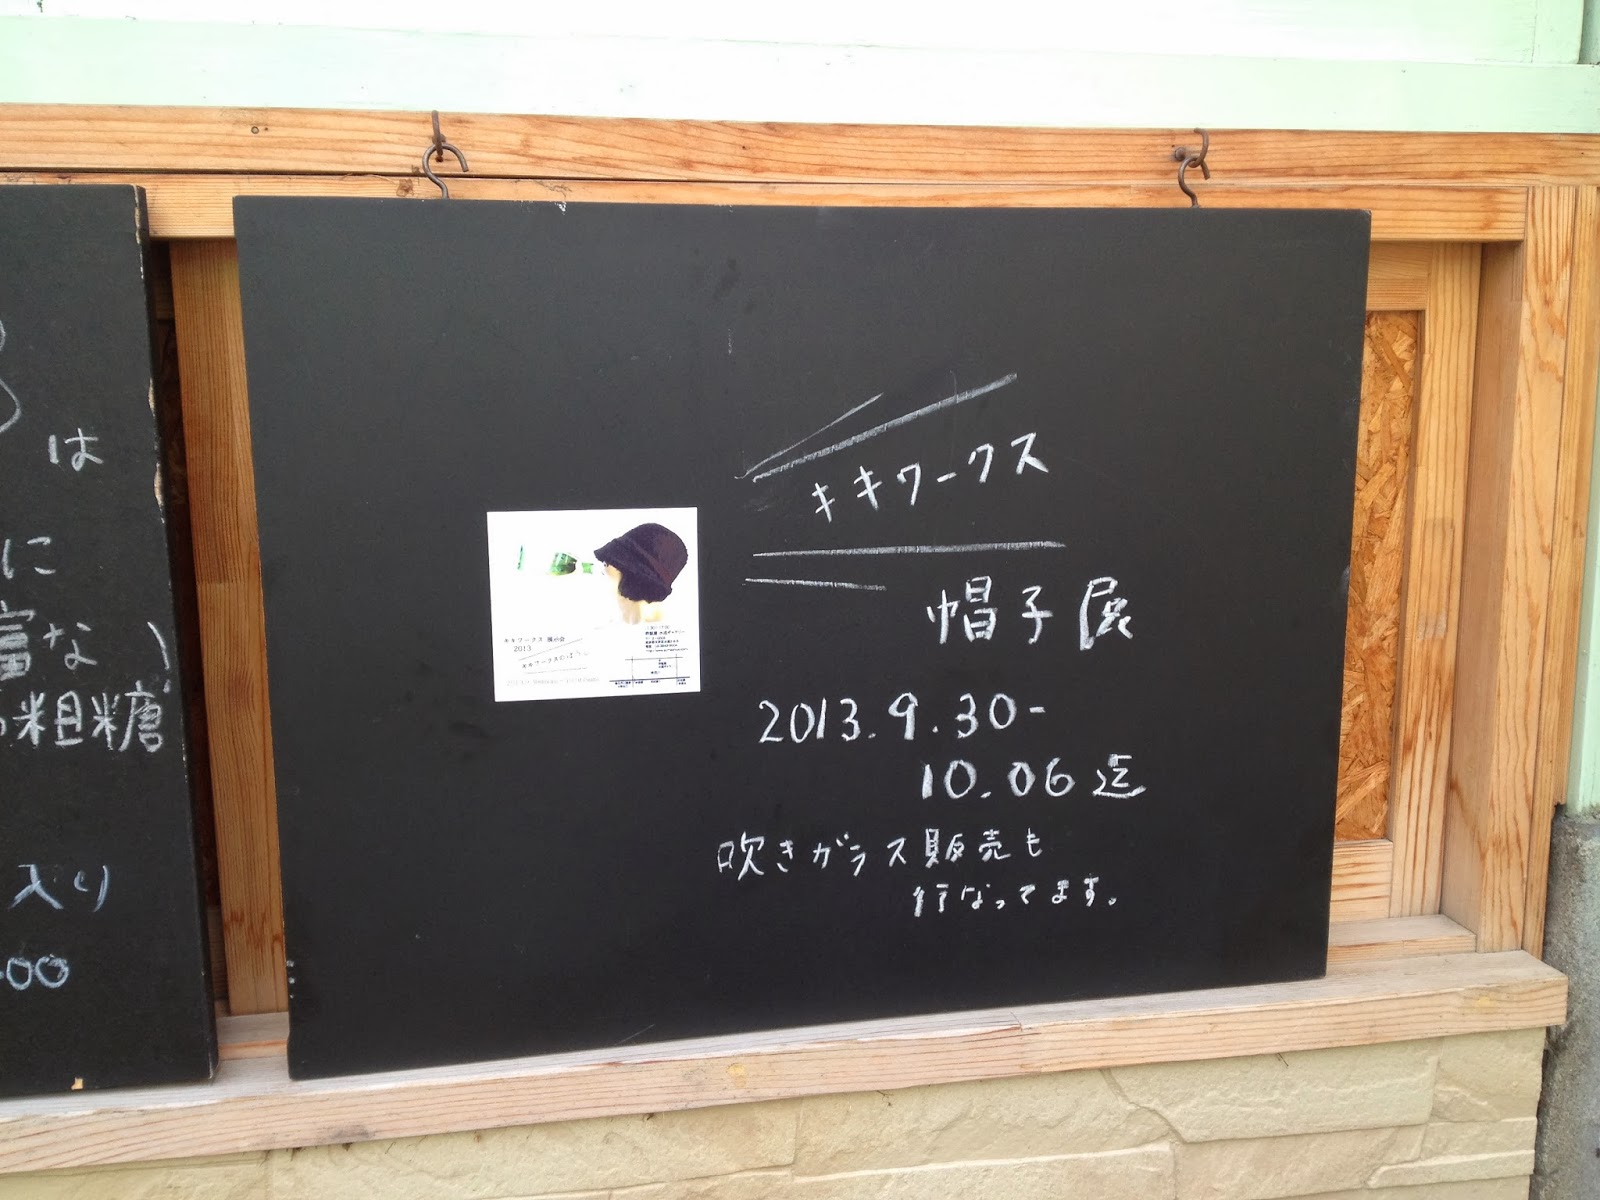 は
に
富な
粗糖
入り
00
キキワークス
帽子展
2013.9.30-
10.06迄
吹きガラス販売も
行なってます。
キキワークス 展示会
2013
キキワークスのぼうし